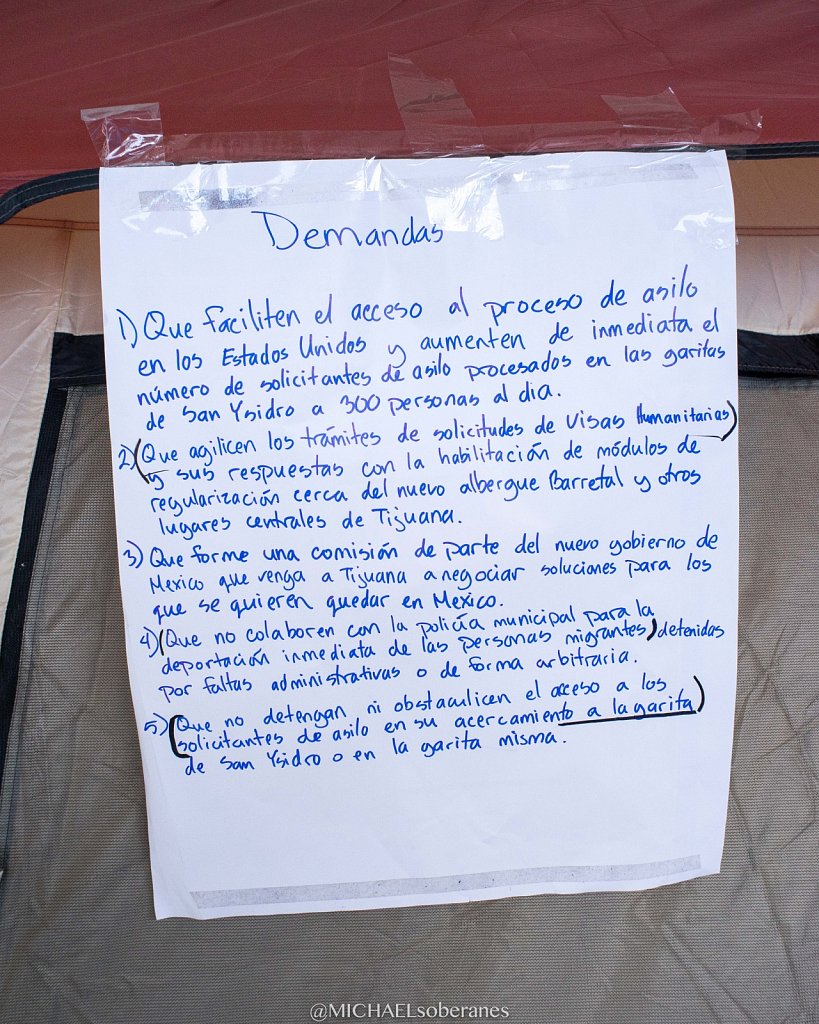 Demandas
1) Que faciliten el acceso al proceso de asilo
en los Estados Unidos y aumenten de inmediata el
número de solicitantes de asilo procesados en las garitas
de San Ysidro a 300 personas al día.
2) (Que agilicen los trámites de solicitudes de Visas Humanitarias)
y sus respuestas con la habilitación de módulos de
regularización cerca del nuevo albergue Barretal y otros
lugares centrales de Tijuana.
3) Que forme una comisión de parte del nuevo gobierno de
Mexico que venga a Tijuana a negociar soluciones para los
que se quieren quedar en Mexico.
4) (Que no colaboren con la policía municipal para la
deportación inmediata de las personas migrantes) detenidas
por faltas administrativas o de forma arbitraria.
5) (Que no detengan ni obstaculicen el acceso a los
solicitantes de asilo en su acercamiento a la garita)
de San Ysidro o en la garita misma.
@MICHAELsoberanes